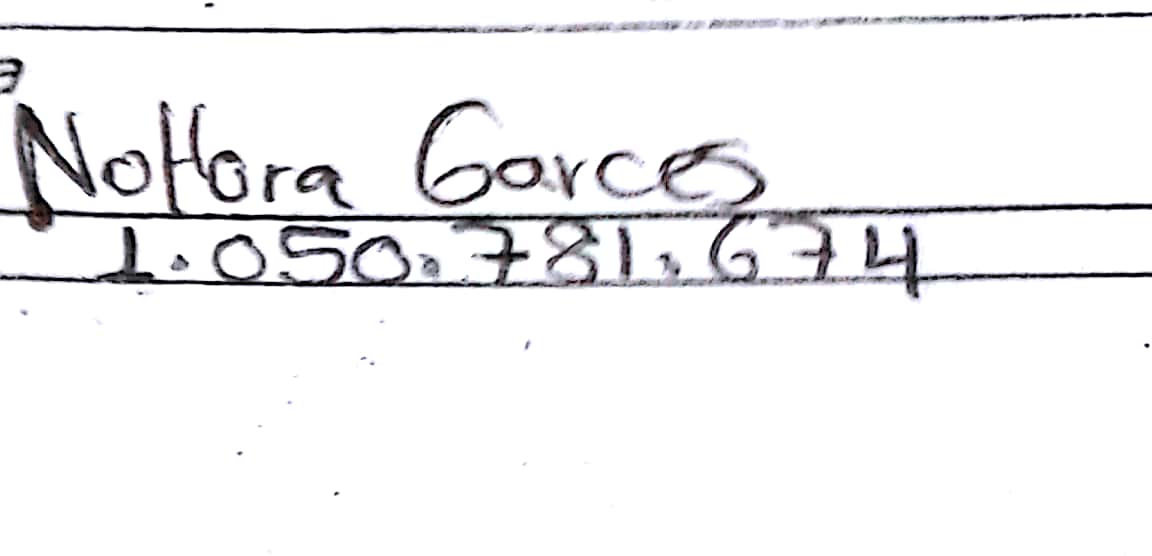 NoHora Garces
1.050.781.674